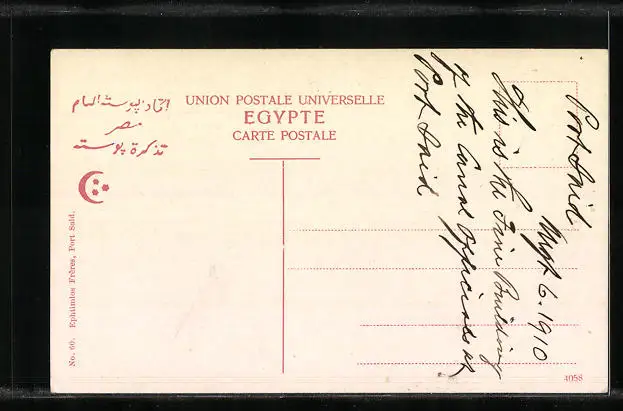 اتحاد پوسته العام
مصر
تذكرة پوسته
UNION POSTALE UNIVERSELLE
EGYPTE
CARTE POSTALE
No. 60. Ephtimios Frères, Port Said.
4058
Port Said
6. 1910
This is the Fine Building
of the Canal Officials at
Port Said